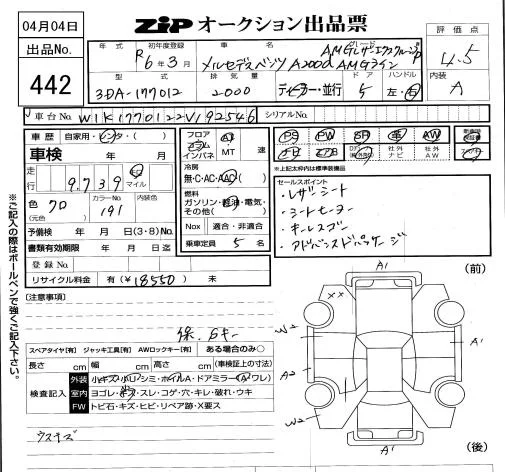 04月04日
ZiP オークション出品票
出品No.
442
年式
初年度登録
車名
グレード
評価点
R6年3月
メルセデスベンツ A200d AMGライン
AMGレザーエクスクルーシブP
4.5
型式
排気量
ドア
ハンドル
内装
3DA-177012
2000
ディーラー・並行
5
左・右
A
車台No.
W1K1770122V192546
シリアルNo.
車歴
自家用・レンタ・( )
フロア
コラム
インパネ
AT
MT
速
PS
PW
SR
革
AW
車検
年
月
冷房
無・C・AC・AAC
エアB
社外
ナビ
社外
AV
※上記太枠内は標準装備品
走行
9,739
km
マイル
燃料
ガソリン・軽油・電気・
その他( )
セールスポイント
・レザーシート
・シートヒーター
・キーレスゴー
・アドバンスドパッケージ
色
(元色)
クロ
カラーNo.
191
内装色
Nox
適合・非適合
予備検
年
月
日(3・8)No.
書類有効期限
年
月
日迄
乗車定員
5
名
登録No.
リサイクル料金
有(¥18550)
未
(注意事項)
スペアタイヤ[有]
ジャッキ工具[有]
AWロックキー[有]
ある場合のみ○
長さ
cm
幅
cm
高さ
cm
(車検証上の寸法)
検査記入
外装
小キズ・小U・シミ・ホイルA・ドアミラー(A・ワレ)
室内
ヨゴレ・キズ・スレ・コゲ・穴・キレ・破れ・ウキ
FW
トビ石・キズ・ヒビ・リペア跡・X要ス
ウスキズ
A1
(前)
XX
W2
A1
A2
W2
A1
(後)
※ご記入の際はボールペンで強くご記入下さい。